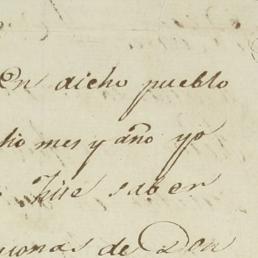 En dicho pueblo
dho mes y año yo
hise saber
personas de Don